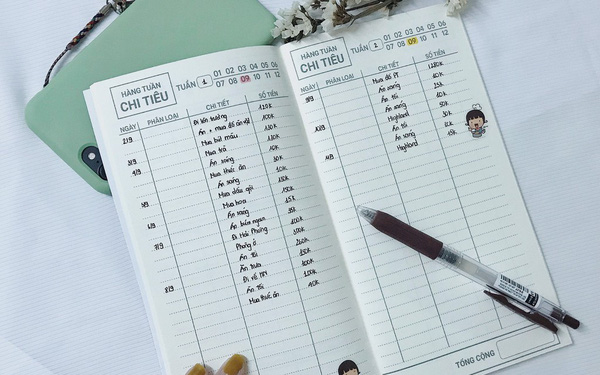 HÀNG TUẦN
CHI TIÊU
TUẦN 1 01 02 03 04 05 06
07 08 09 10 11 12
NGÀY PHÂN LOẠI CHI TIẾT SỐ TIỀN
2/9 120k
Ăn + mua đồ ăn vặt 100k
Mua bút màu 130k
3/9 Mua trà 130k
4/9 Ăn sáng 10k
Mua thức ăn 30k
Ăn sáng 10k
Mua dầu gội 180k
5/9 Mua hoa 150k
Ăn sáng 15k
6/9 Ăn bún ngan 35k
7/9 Đi Hải Phòng 100k
Phòng ở 300k
Ăn tối 200k
Ăn trưa 150k
8/9 Đi về 100k
Ăn tối 100k
Mua thức ăn 40k
HÀNG TUẦN
CHI TIÊU
TUẦN 2 01 02 03 04 05 06
07 08 09 10 11 12
NGÀY PHÂN LOẠI CHI TIẾT SỐ TIỀN
9/9 Mua đồ PT
Ăn sáng 10k
Ăn tối 25k
Ăn sáng 10k
10/9 Highland 50k
Ăn tối
Ăn sáng
11/9 Highland
TỔNG CỘNG